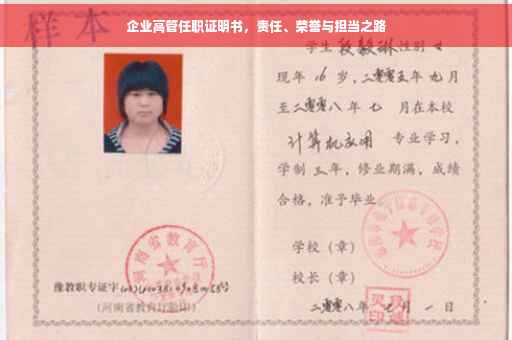 企业高管任职证明书，责任、荣誉与担当之路
样本
学生 段毅琳 性别 女
现年 16 岁，二零零五年 九 月
至二零零八年 七 月在本校
计算机应用 专业学习，
学制 三 年，修业期满，成绩
合格，准予毕业
学校（章）
校长（章）
二零零八年 七 月 一 日
河南省教育厅
豫教职专证字
(河南省教育厅验印)